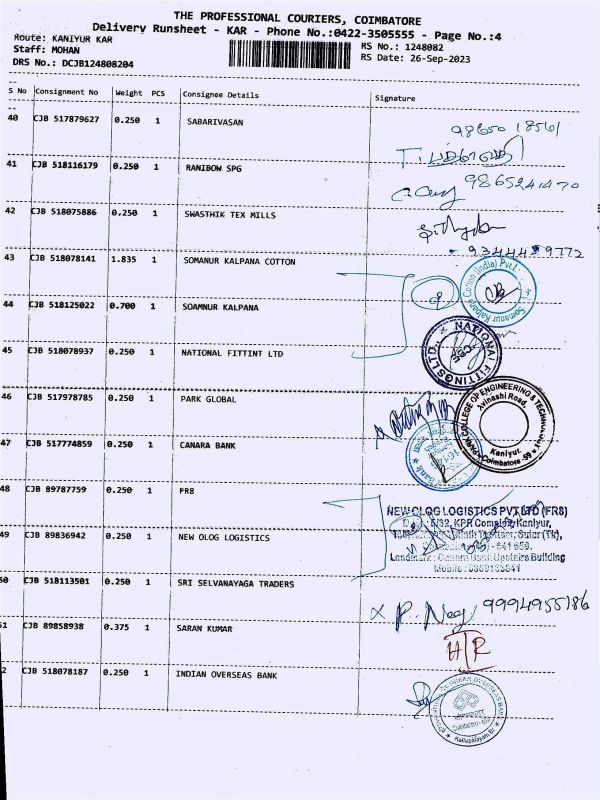 THE PROFESSIONAL COURIERS, COIMBATORE
Delivery Runsheet - KAR - Phone No.:0422-3505555 - Page No.:4
Route: KANIYUR KAR
Staff: MOHAN
DRS No.: DCJB124808204
RS No.: 1248082
RS Date: 26-Sep-2023
S No Consignment No Weight PCS Consignee Details Signature
40 CJB 517879627 0.250 1 SABARIVASAN
41 CJB 518116179 0.250 1 RANIBOW SPG
9865241470
42 CJB 518075886 0.250 1 SWASTHIK TEX MILLS
43 CJB 518078141 1.835 1 SOMANUR KALPANA COTTON
Somanur Kalpana Cotton (India) Pvt.L
44 CJB 518125022 0.700 1 SOAMNUR KALPANA
45 CJB 518078937 0.250 1 NATIONAL FITTINT LTD
NATIONAL FITTINGS LTD.,
CBE
46 CJB 517978785 0.250 1 PARK GLOBAL
COLLEGE OF ENGINEERING & TECHNOLOGY
Avinashi Road,
Kaniyur.
Coimbatore -59
47 CJB 517774859 0.250 1 CANARA BANK
48 CJB 89787759 0.250 1 FR8
NEW OLOG LOGISTICS PVT LTD (FR8)
5/32, KPR Complex, Kaniyur,
Sulur (Tk),
- 641 659.
Landmark : Canara Bank Upstairs Building
Mobile :
49 CJB 89836942 0.250 1 NEW OLOG LOGISTICS
50 CJB 518113501 0.250 1 SRI SELVANAYAGA TRADERS
9994955186
51 CJB 89858938 0.375 1 SARAN KUMAR
2 CJB 518078187 0.250 1 INDIAN OVERSEAS BANK
INDIAN OVERSEAS BANK